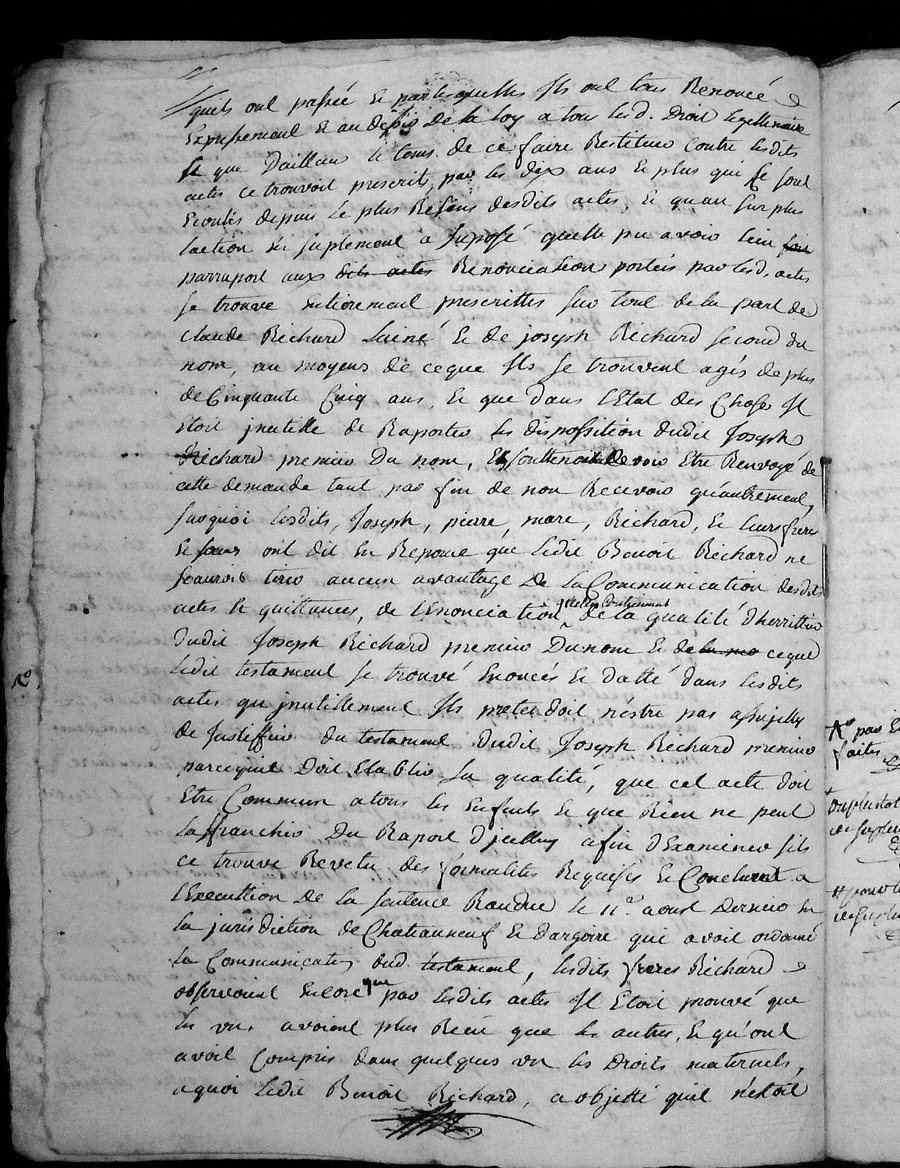 quels ont passée et par lesquelles Ils ont tous Renoncé
Expressement et au depis de la loy a tous lesd. Droit Legittimaire
et que Dailleurs le tems de ce faire Restituer Contre lesdits
actes ce trouvoit prescrit, par les dix ans et plus qui se sont
Ecoulés depuis le plus Resens desdits actes, et qu'au surplus
l'action en suplement a suposé quelle pu avoir lieu
parraport aux dits actes Renonciations portées par lesd. actes
se trouve entierement prescrittes sur tout de la part de
Claude Richard Lainé et de joseph Richard second du
nom, au moyens de ceque Ils se trouvent agés de plus
de Cinquante Cinq ans, et que dans l'Etat des Choses Il
Etoit jnutille de Raporter les disposition dudit Joseph
Richard premier du nom, Et souttenoit devoir Etre Renvoyé de
cette demande tant par fin de non Recevoir qu'autrement,
surquoi lesdits, Joseph, pierre, marc, Richard, et leurs freres
et sœurs ont dit En Reponce que ledit Benoit Richard ne
scauroit tirer aucun avantage de la Communication desdits
actes et quittances, de l'Enonciation quelles Contiennent de la qualité d'herittier
dudit Joseph Richard premier Dunom et de ceque
ledit testament se trouvé Enoncés et datté dans lesdits
actes qu'jnutillement Ils pretendoit n'estre pas assujetty
de Justiffier du testament dudit Joseph Richard premier
parcequil doit Etablir sa qualité, que cet acte doit
Etre Commun a tous les Enfents et que Rien ne peut
Laffranchir du Raport d'jcelluy afin d'Examiner sils
ce trouve Revetu des formalités Requises et Concluent a
l'Executtion de la sentence Randue le 11e. aoust Dernier en
la jurisdiction de Chateauneuf et Dargoire qui avoit ordonné
la Communication dud. testament, lesdits freres Richard
observoient Encore que par lesdits actes Il Etoit prouvé que
les uns avoient plus Recu que les autres, et qu'ont
avoit Compris dans quelques un les Droits maternels,
aquoi ledit Benoit Richard, a objetté quil n'étoit
Ro
par
faites